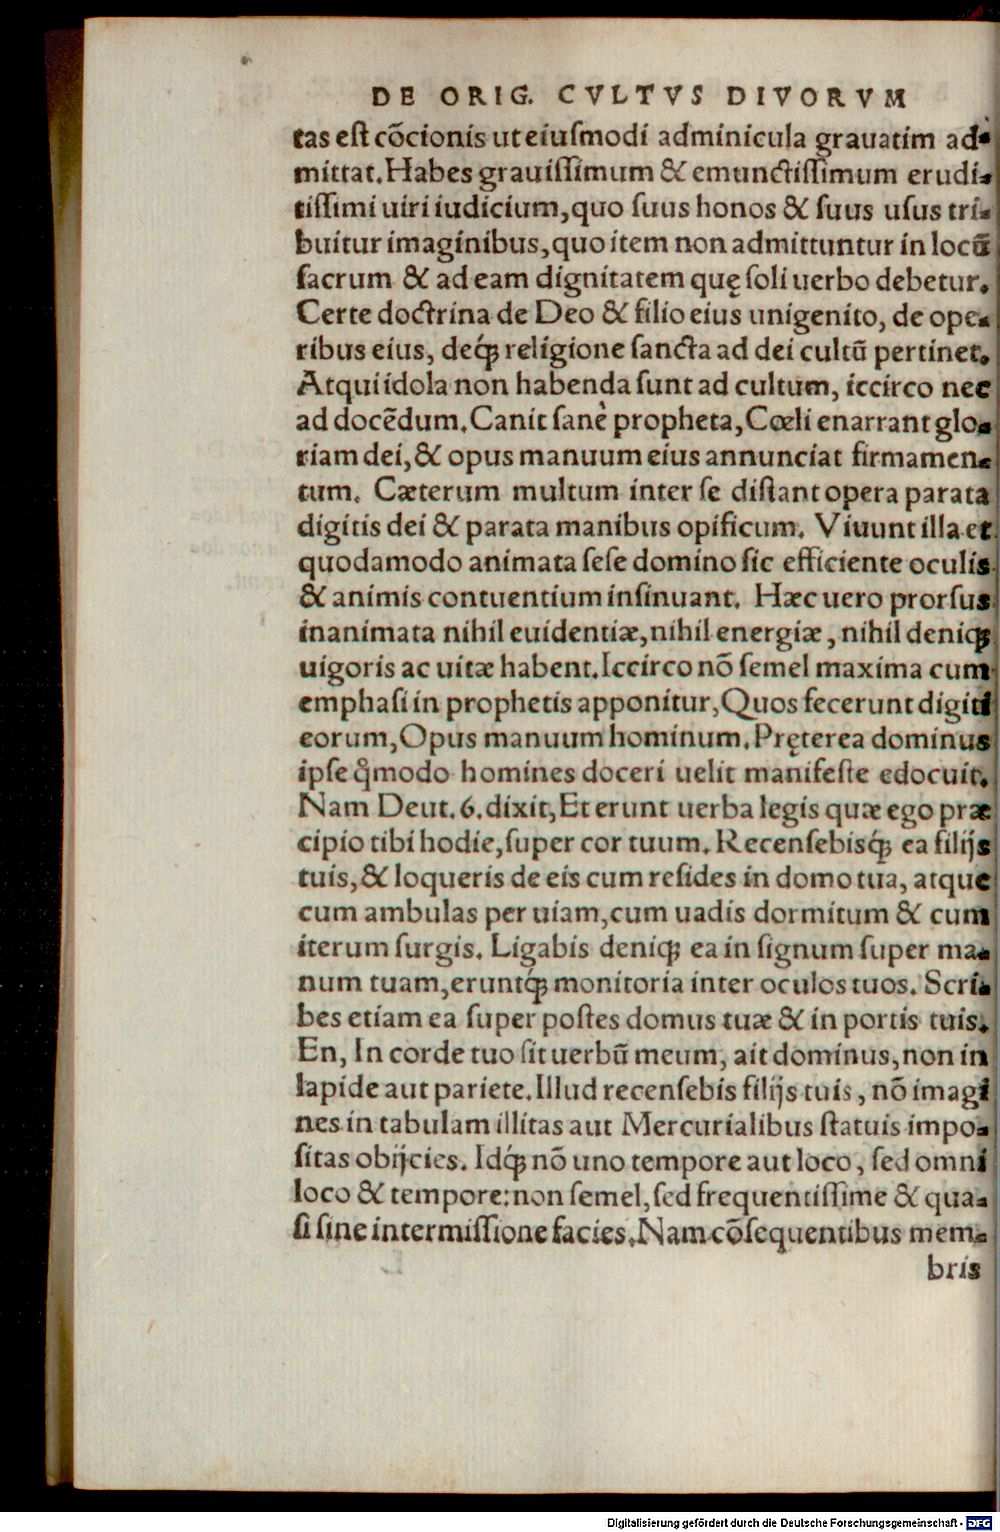 DE ORIG. CVLTVS DIVORVM
tas est cõcionis ut eiusmodi adminicula grauatim ad-
mittat. Habes grauissimum & emunctissimum erudi-
tissimi uiri iudicium, quo suus honos & suus usus tri-
buitur imaginibus, quo item non admittuntur in locũ
sacrum & ad eam dignitatem quę soli uerbo debetur.
Certe doctrina de Deo & filio eius unigenito, de ope-
ribus eius, deq́; religione sancta ad dei cultũ pertinet.
Atqui idola non habenda sunt ad cultum, iccirco nec
ad docẽdum. Canit sanè propheta, Cœli enarrant glo-
riam dei, & opus manuum eius annunciat firmamen-
tum. Cæterum multum inter se distant opera parata
digitis dei & parata manibus opificum. Viuunt illa et
quodamodo animata sese domino sic efficiente oculis
& animis contuentium insinuant. Hæc uero prorsus
inanimata nihil euidentiæ, nihil energiæ, nihil deniq;
uigoris ac uitæ habent. Iccirco nõ semel maxima cum
emphasi in prophetis apponitur, Quos fecerunt digiti
eorum, Opus manuum hominum. Pręterea dominus
ipse q̃modo homines doceri uelit manifeste edocuit.
Nam Deut. 6. dixit, Et erunt uerba legis quæ ego præ
cipio tibi hodie, super cor tuum. Recensebisq́; ea filijs
tuis, & loqueris de eis cum resides in domo tua, atque
cum ambulas per uiam, cum uadis dormitum & cum
iterum surgis. Ligabis deniq; ea in signum super ma-
num tuam, eruntq́; monitoria inter oculos tuos. Scri-
bes etiam ea super postes domus tuæ & in portis tuis.
En, In corde tuo sit uerbũ meum, ait dominus, non in
lapide aut pariete. Illud recensebis filijs tuis, nõ imagi
nes in tabulam illitas aut Mercurialibus statuis impo-
sitas obijcies. Idq́; nõ uno tempore aut loco, sed omni
loco & tempore: non semel, sed frequentissime & qua-
si sine intermissione facies. Nam cõsequentibus mem-
bris
Digitalisierung gefördert durch die Deutsche Forschungsgemeinschaft - DFG